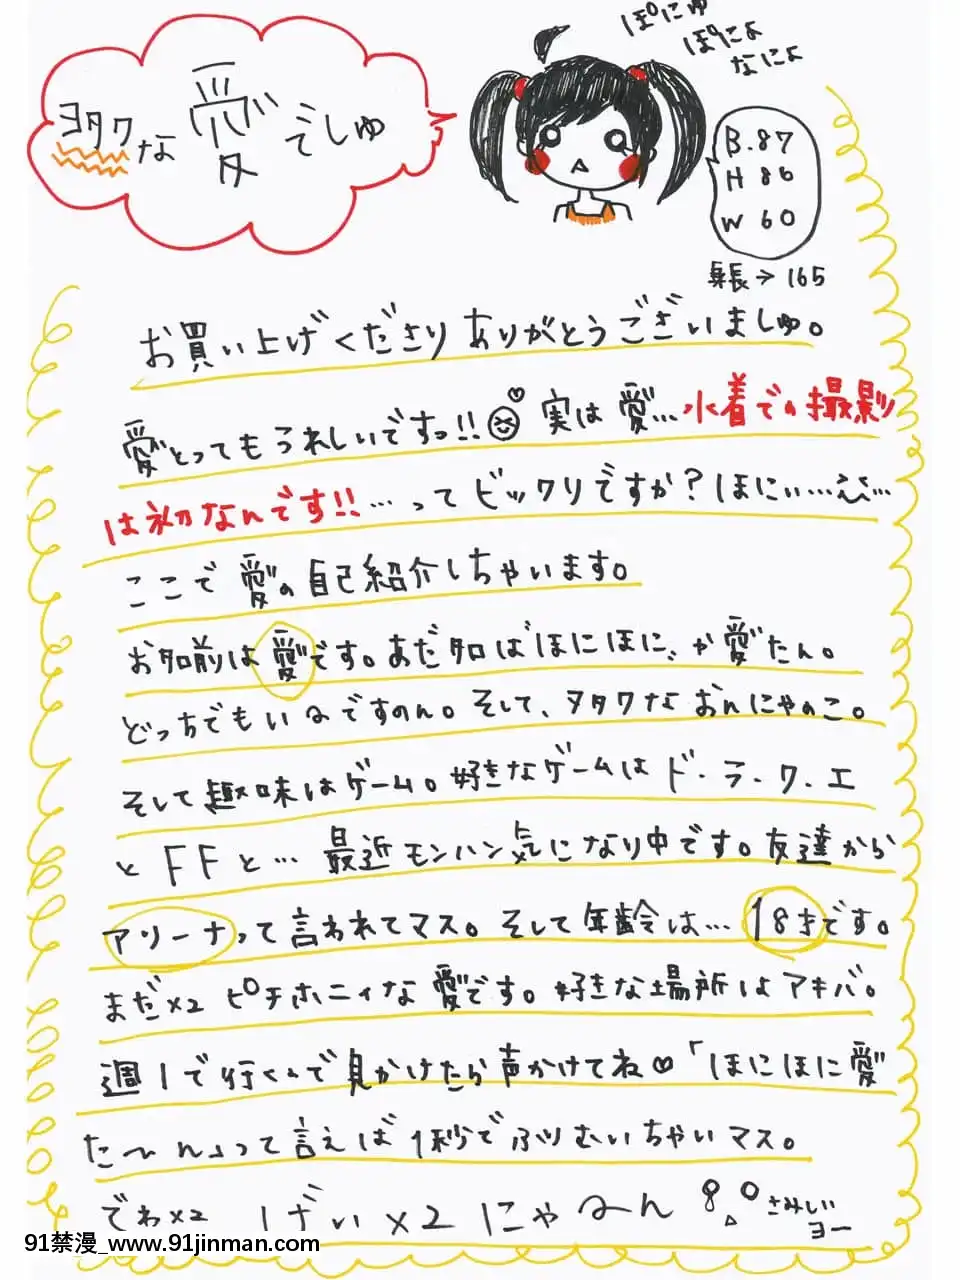 ぽにゅ
ぽにょ
なによ
ヲタクな愛でしゅ
B.87
H 86
W 60
身長→165
お買い上げくださりありがとうございましゅ。
愛とってもうれしいですっ!!実は愛…水着での撮影
は初なんです!!…ってビックリですか?ほにぃ…
ここで愛の自己紹介しちゃいます。
お名前は愛です。あだ名は"ほにほに"か愛たん。
どっちでもいるですのん。そして、ヲタクなおんにゃのこ。
そして趣味はゲーム。好きなゲームはド・ラ・ク・エ
とFFと…最近モンハン気になり中です。友達から
アリーナって言われてマス。そして年齢は…18才です。
まだ×2ピチホニィな愛です。好きな場所はアキバ。
週1で行くので見かけたら声かけてね♡「ほにほに愛
た〜ん」って言えば1秒でふりむいちゃいマス。
でわ×2 ばぃ×2にゃーん さみしぃ
ヨー
91禁漫_www.91jinman.com